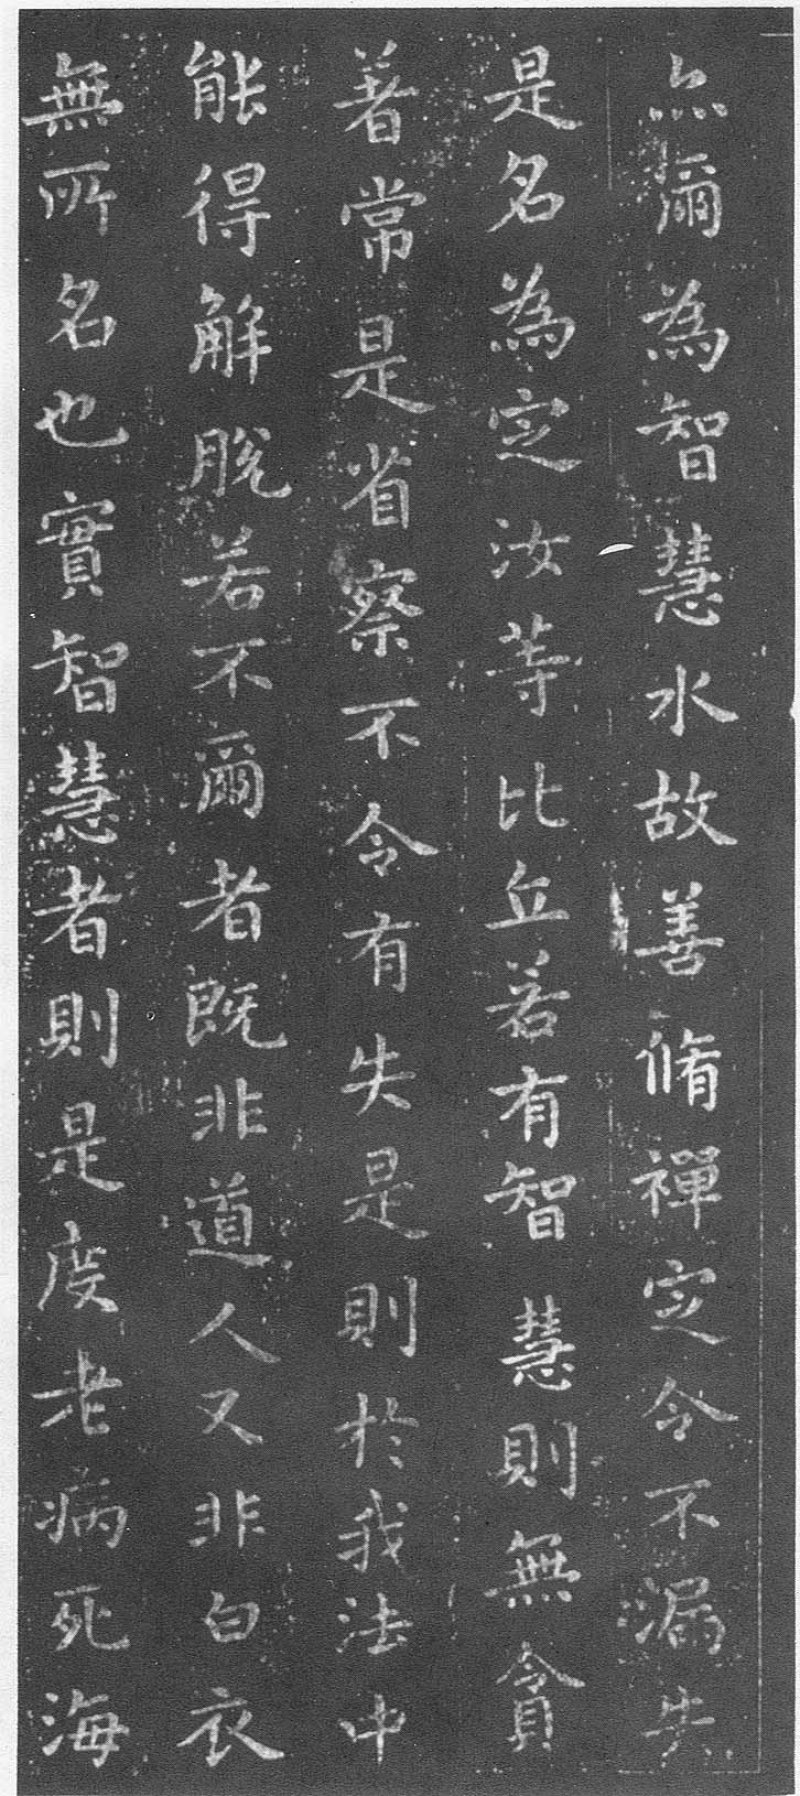 亦爾為智慧水故善脩禪定令不漏失
是名為定汝等比丘若有智慧則無貪
著常是省察不令有失是則於我法中
能得解脫若不爾者既非道人又非白衣
無所名也實智慧者則是度老病死海